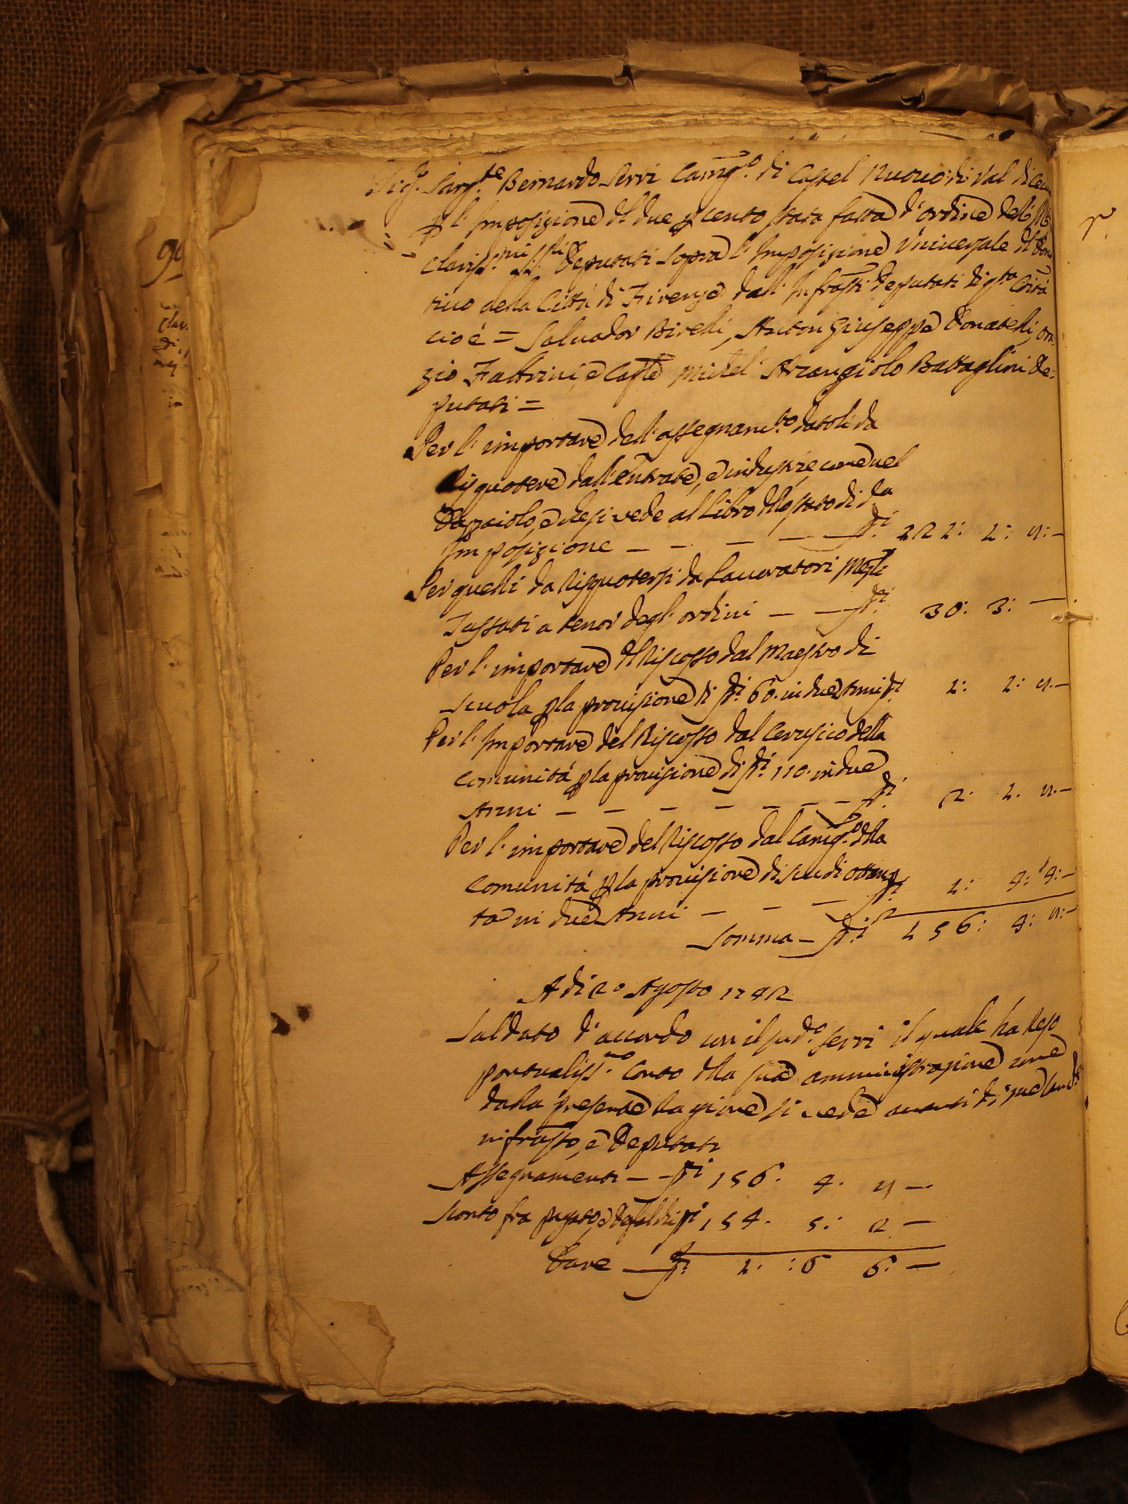 Sig.r Sarg.te Bernardo Serri Camg.o di Castel Nuovo di Val di Cecina
p l'Imposizione del due p cento stata fatta d'ordine delli
Clariss.mi SS.ri Deputati sopra l'Imposizione Universale del Dona
tivo della Città di Firenze dall'Infratti Deputati di q.ta Com.tà
cioè = Salvador Birelli, Anton Giuseppe Donatelli, Ora
zio Fattrini, e Cap.te Michel Arcangiolo Battaglini De-
putati =
Per l'importare dell'assegnam.to datoli da
Risquotere dall'Entrate, e industrie come nel
Dazzaiolo, e che si vede al Libro dello stato di da
Imposizione — — — — — 122: 2: 4: —
Per quelli da Risquotersi da Lavoratori Mez.li
Tassati a tenor degl'ordini — — 30: 3: —
Per l'importare del Riscosso dal Maestro di
scuola p la provisione di 60. in due Anni 1: 1: 4: —
Per l'Importare del Riscosso dal Cerusico della
Comunità p la provisione di 110. in due
Anni — — — — — — — 2. 1. 4. —
Per l'importare del Riscosso dal Camg.o della
Comunità p la provisione di scudi ottan
ta in due Anni — — — 1: 4: 4: —
Somma — 156: 4: 4: —
A di 20 Agosto 1742
Saldato d'accordo con il sud.o Serri il quale ha reso
pontualiss.mo Conto della sua amministrazione come
dalla presente Ragione si vede avanti di me
infratto, e Deputati
Assegnamenti — — 156. 4. 4 —
Sconto fra pagato, e 154. 5: 2 —
Dare — 1. :6 6: —